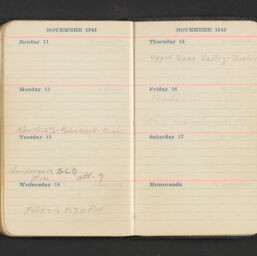 NOVEMBER 1945
Sunday 11
Monday 12
Tuesday 13
Henderson SCD
att-9
Wednesday 14
8:30 PM
NOVEMBER 1945
Thursday 15
Upper Valley
Friday 16
Saturday 17
Memoranda